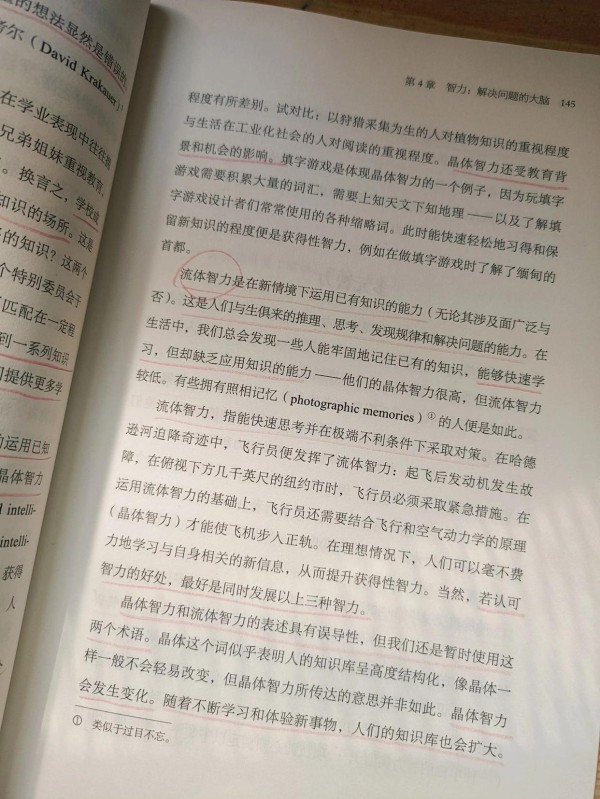 的想法显然是错误的,
考尔（David Krakauer）
在学业表现中往往
兄弟姐妹重视教育,
。换言之，学校成
知识的场所。这是
的知识？这两个
个特别委员会于
匹配在一定程
到一系列知识
提供更多学
运用已知
晶体智力
intelli-
intelli-
获得
人
第4章 智力：解决问题的大脑 145
程度有所差别。试对比：以狩猎采集为生的人对植物知识的重视程度
与生活在工业化社会的人对阅读的重视程度。晶体智力还受教育背
景和机会的影响。填字游戏是体现晶体智力的一个例子，因为玩填字
游戏需要积累大量的词汇，需要上知天文下知地理——以及了解填
字游戏设计者们常常使用的各种缩略词。此时能快速轻松地习得和保
留新知识的程度便是获得性智力，例如在做填字游戏时了解了缅甸的
首都。
流体智力是在新情境下运用已有知识的能力（无论其涉及面广泛与
否）。这是人们与生俱来的推理、思考、发现规律和解决问题的能力。在
生活中，我们总会发现一些人能牢固地记住已有的知识，能够快速学
习，但却缺乏应用知识的能力——他们的晶体智力很高，但流体智力
较低。有些拥有照相记忆（photographic memories）①的人便是如此。
流体智力，指能快速思考并在极端不利条件下采取对策。在哈德
逊河迫降奇迹中，飞行员便发挥了流体智力：起飞后发动机发生故
障，在俯视下方几千英尺的纽约市时，飞行员必须采取紧急措施。在
运用流体智力的基础上，飞行员还需要结合飞行和空气动力学的原理
（晶体智力）才能使飞机步入正轨。在理想情况下，人们可以毫不费
力地学习与自身相关的新信息，从而提升获得性智力。当然，若认可
智力的好处，最好是同时发展以上三种智力。
晶体智力和流体智力的表述具有误导性，但我们还是暂时使用这
两个术语。晶体这个词似乎表明人的知识库呈高度结构化，像晶体一
样一般不会轻易改变，但晶体智力所传达的意思并非如此。晶体智力
会发生变化。随着不断学习和体验新事物，人们的知识库也会扩大。
① 类似于过目不忘。